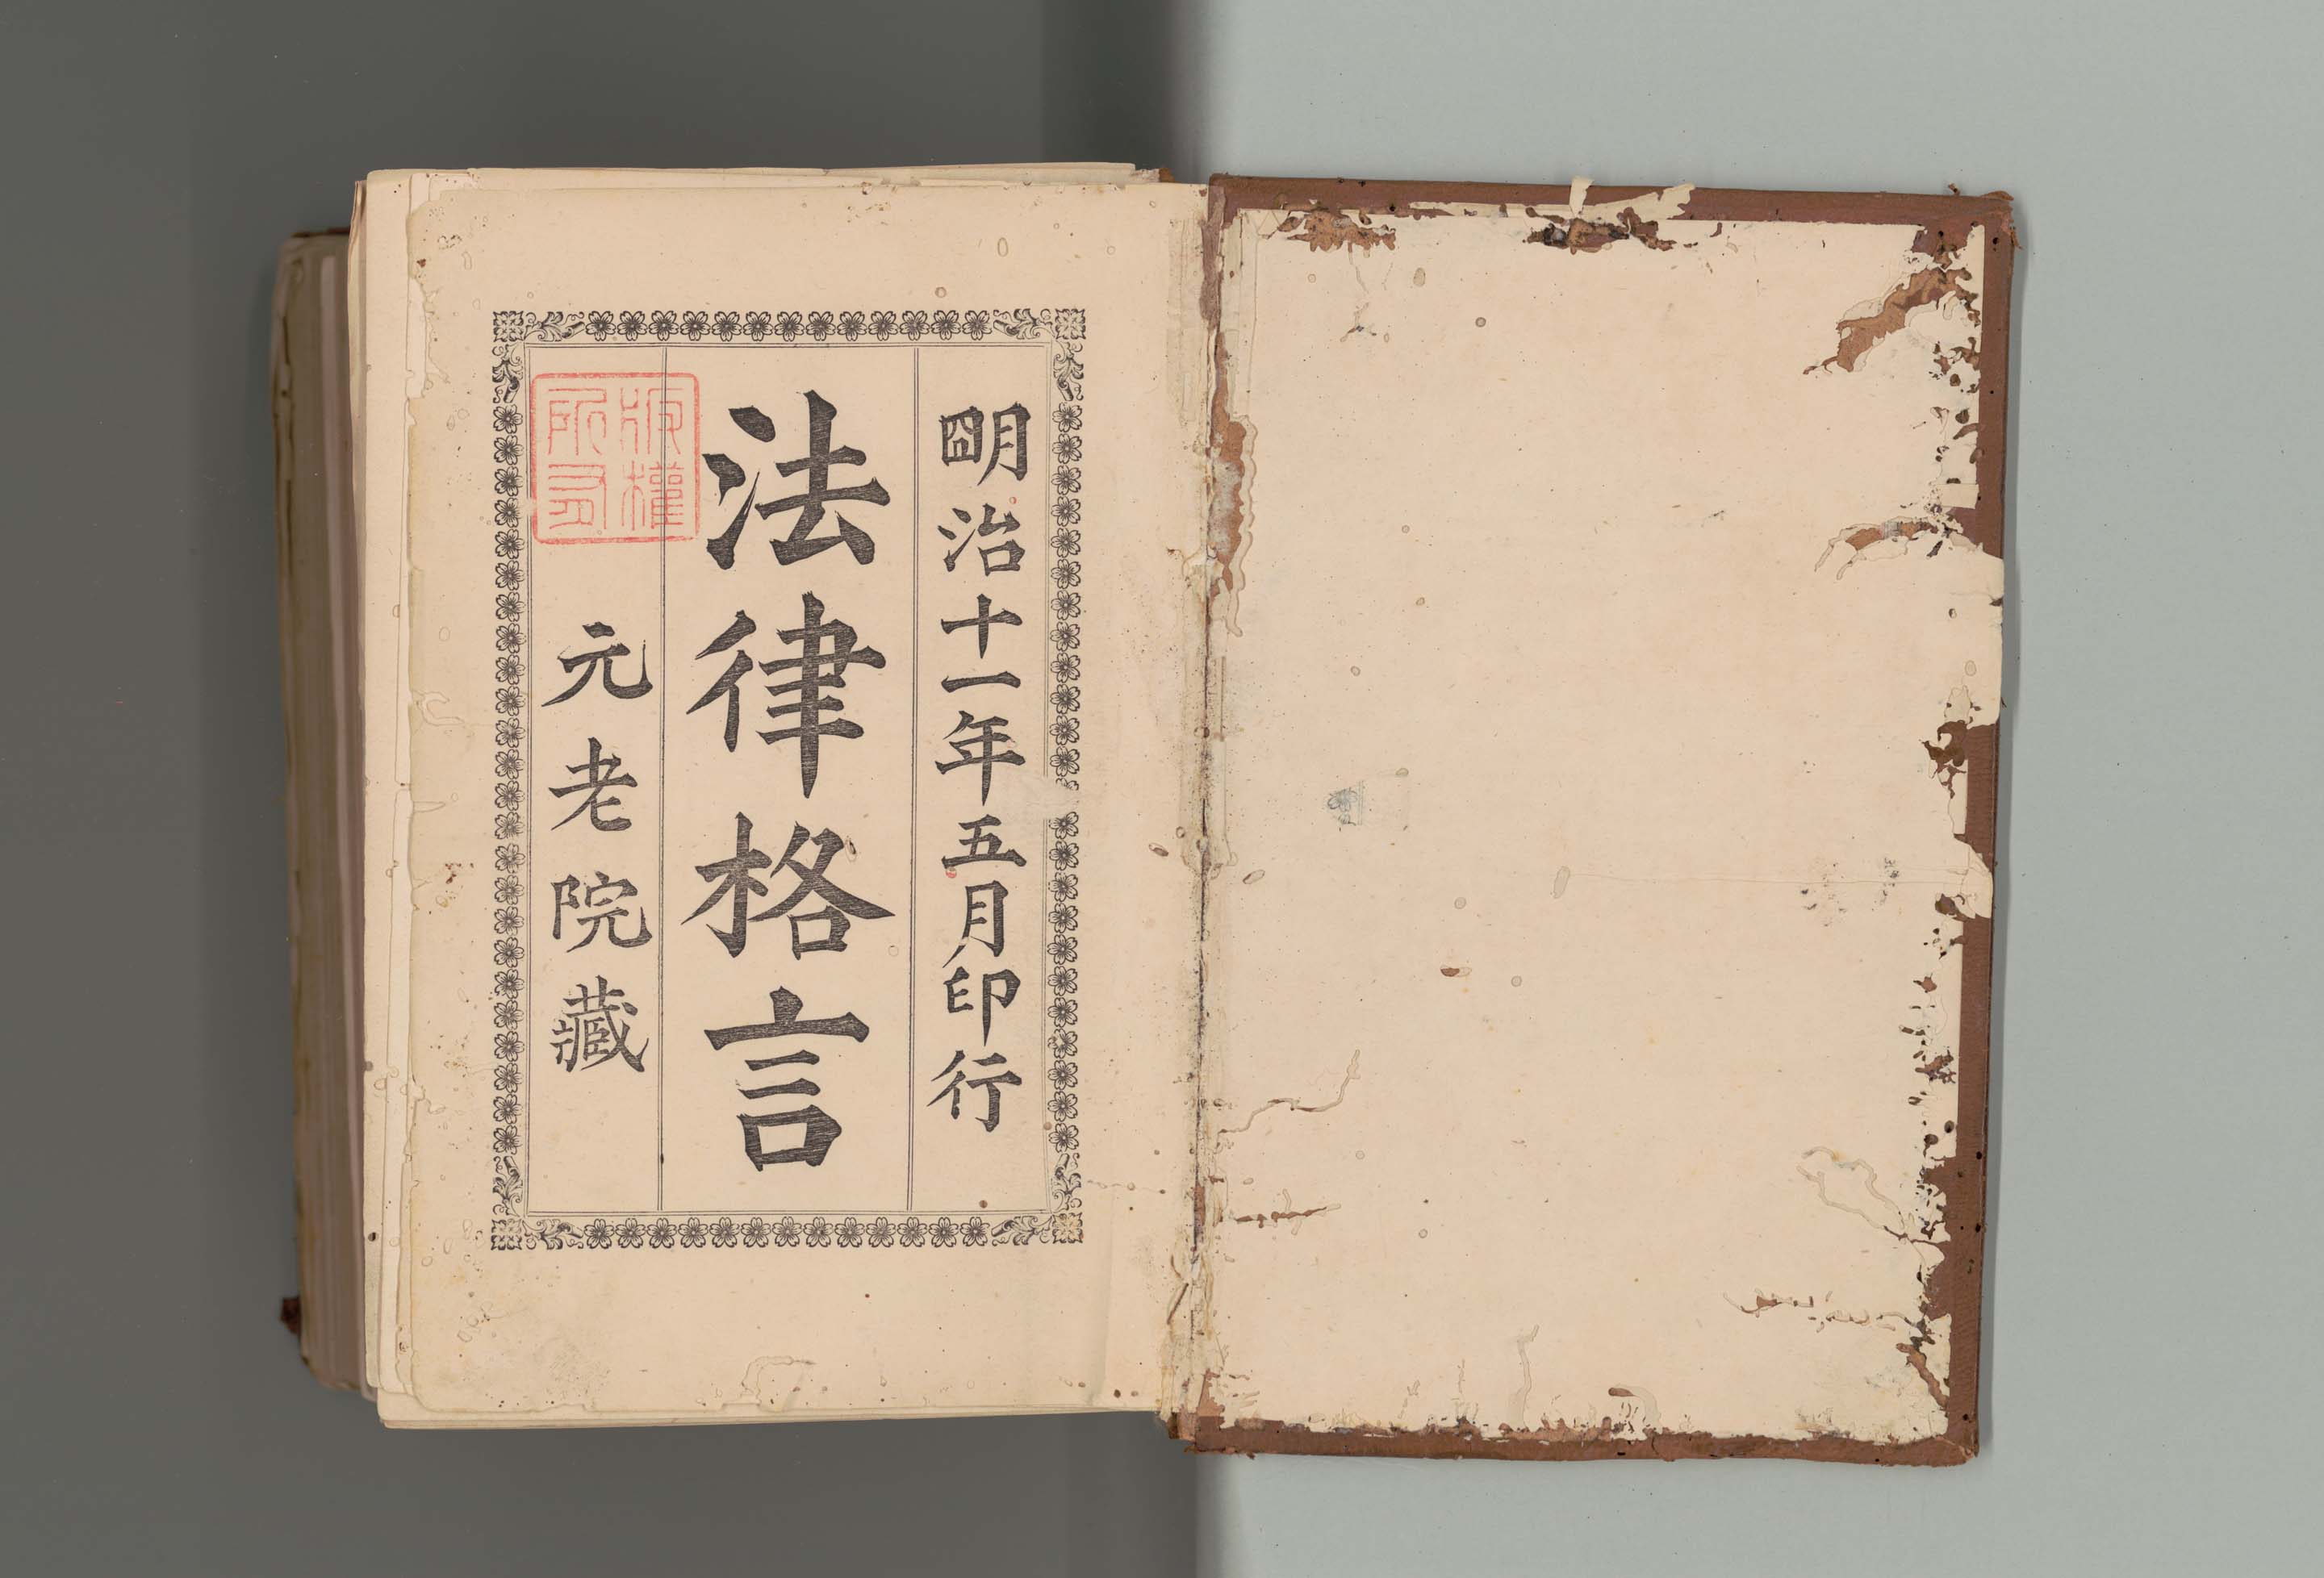 明治十一年五月印行
法律格言
元老院藏
版權
所有